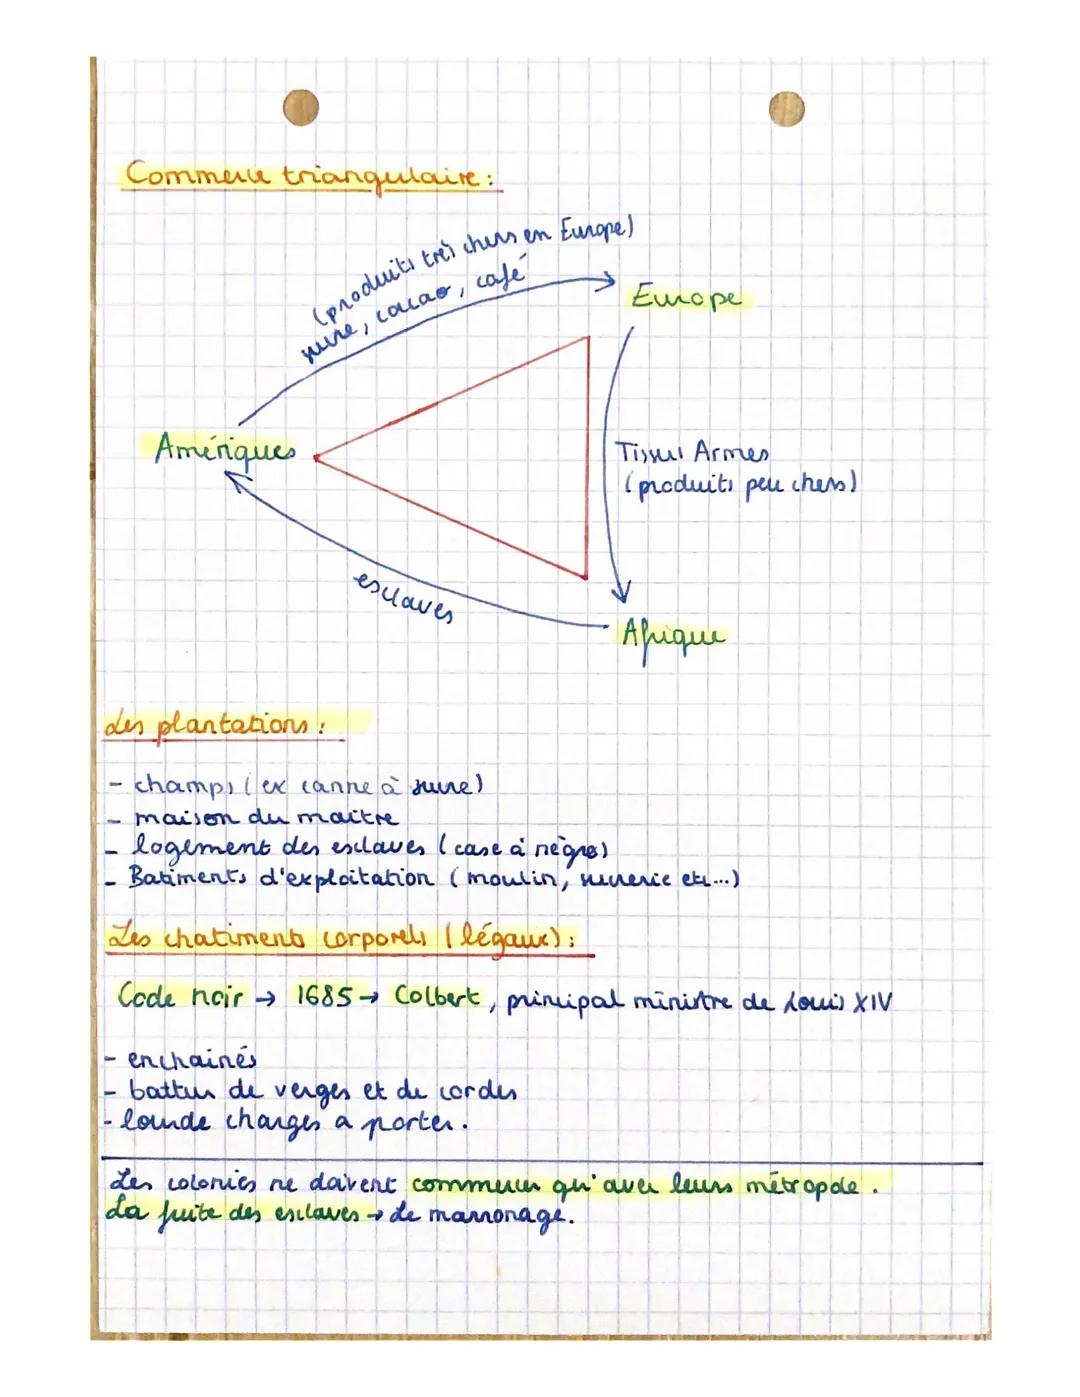 Commerce triangulaire :
(produits très chers en Europe)
sucre, cacao, café
Europe
Amériques
Tissus Armes
(produits peu chers)
esclaves
Afrique
Les plantations :
- champs (ex canne à sucre)
- maison du maitre
- logement des esclaves (case à nègres)
- Batiments d'exploitation (moulin, sucrerie etc...)
Les chatiments corporels (légaux) :
Code noir → 1685 → Colbert, principal ministre de Louis XIV
- enchainés
- battus de verges et de cordes
- lourde charges a porter.
Les colonies ne doivent commercer qu'avec leurs métropole.
La fuite des esclaves → le marronage.